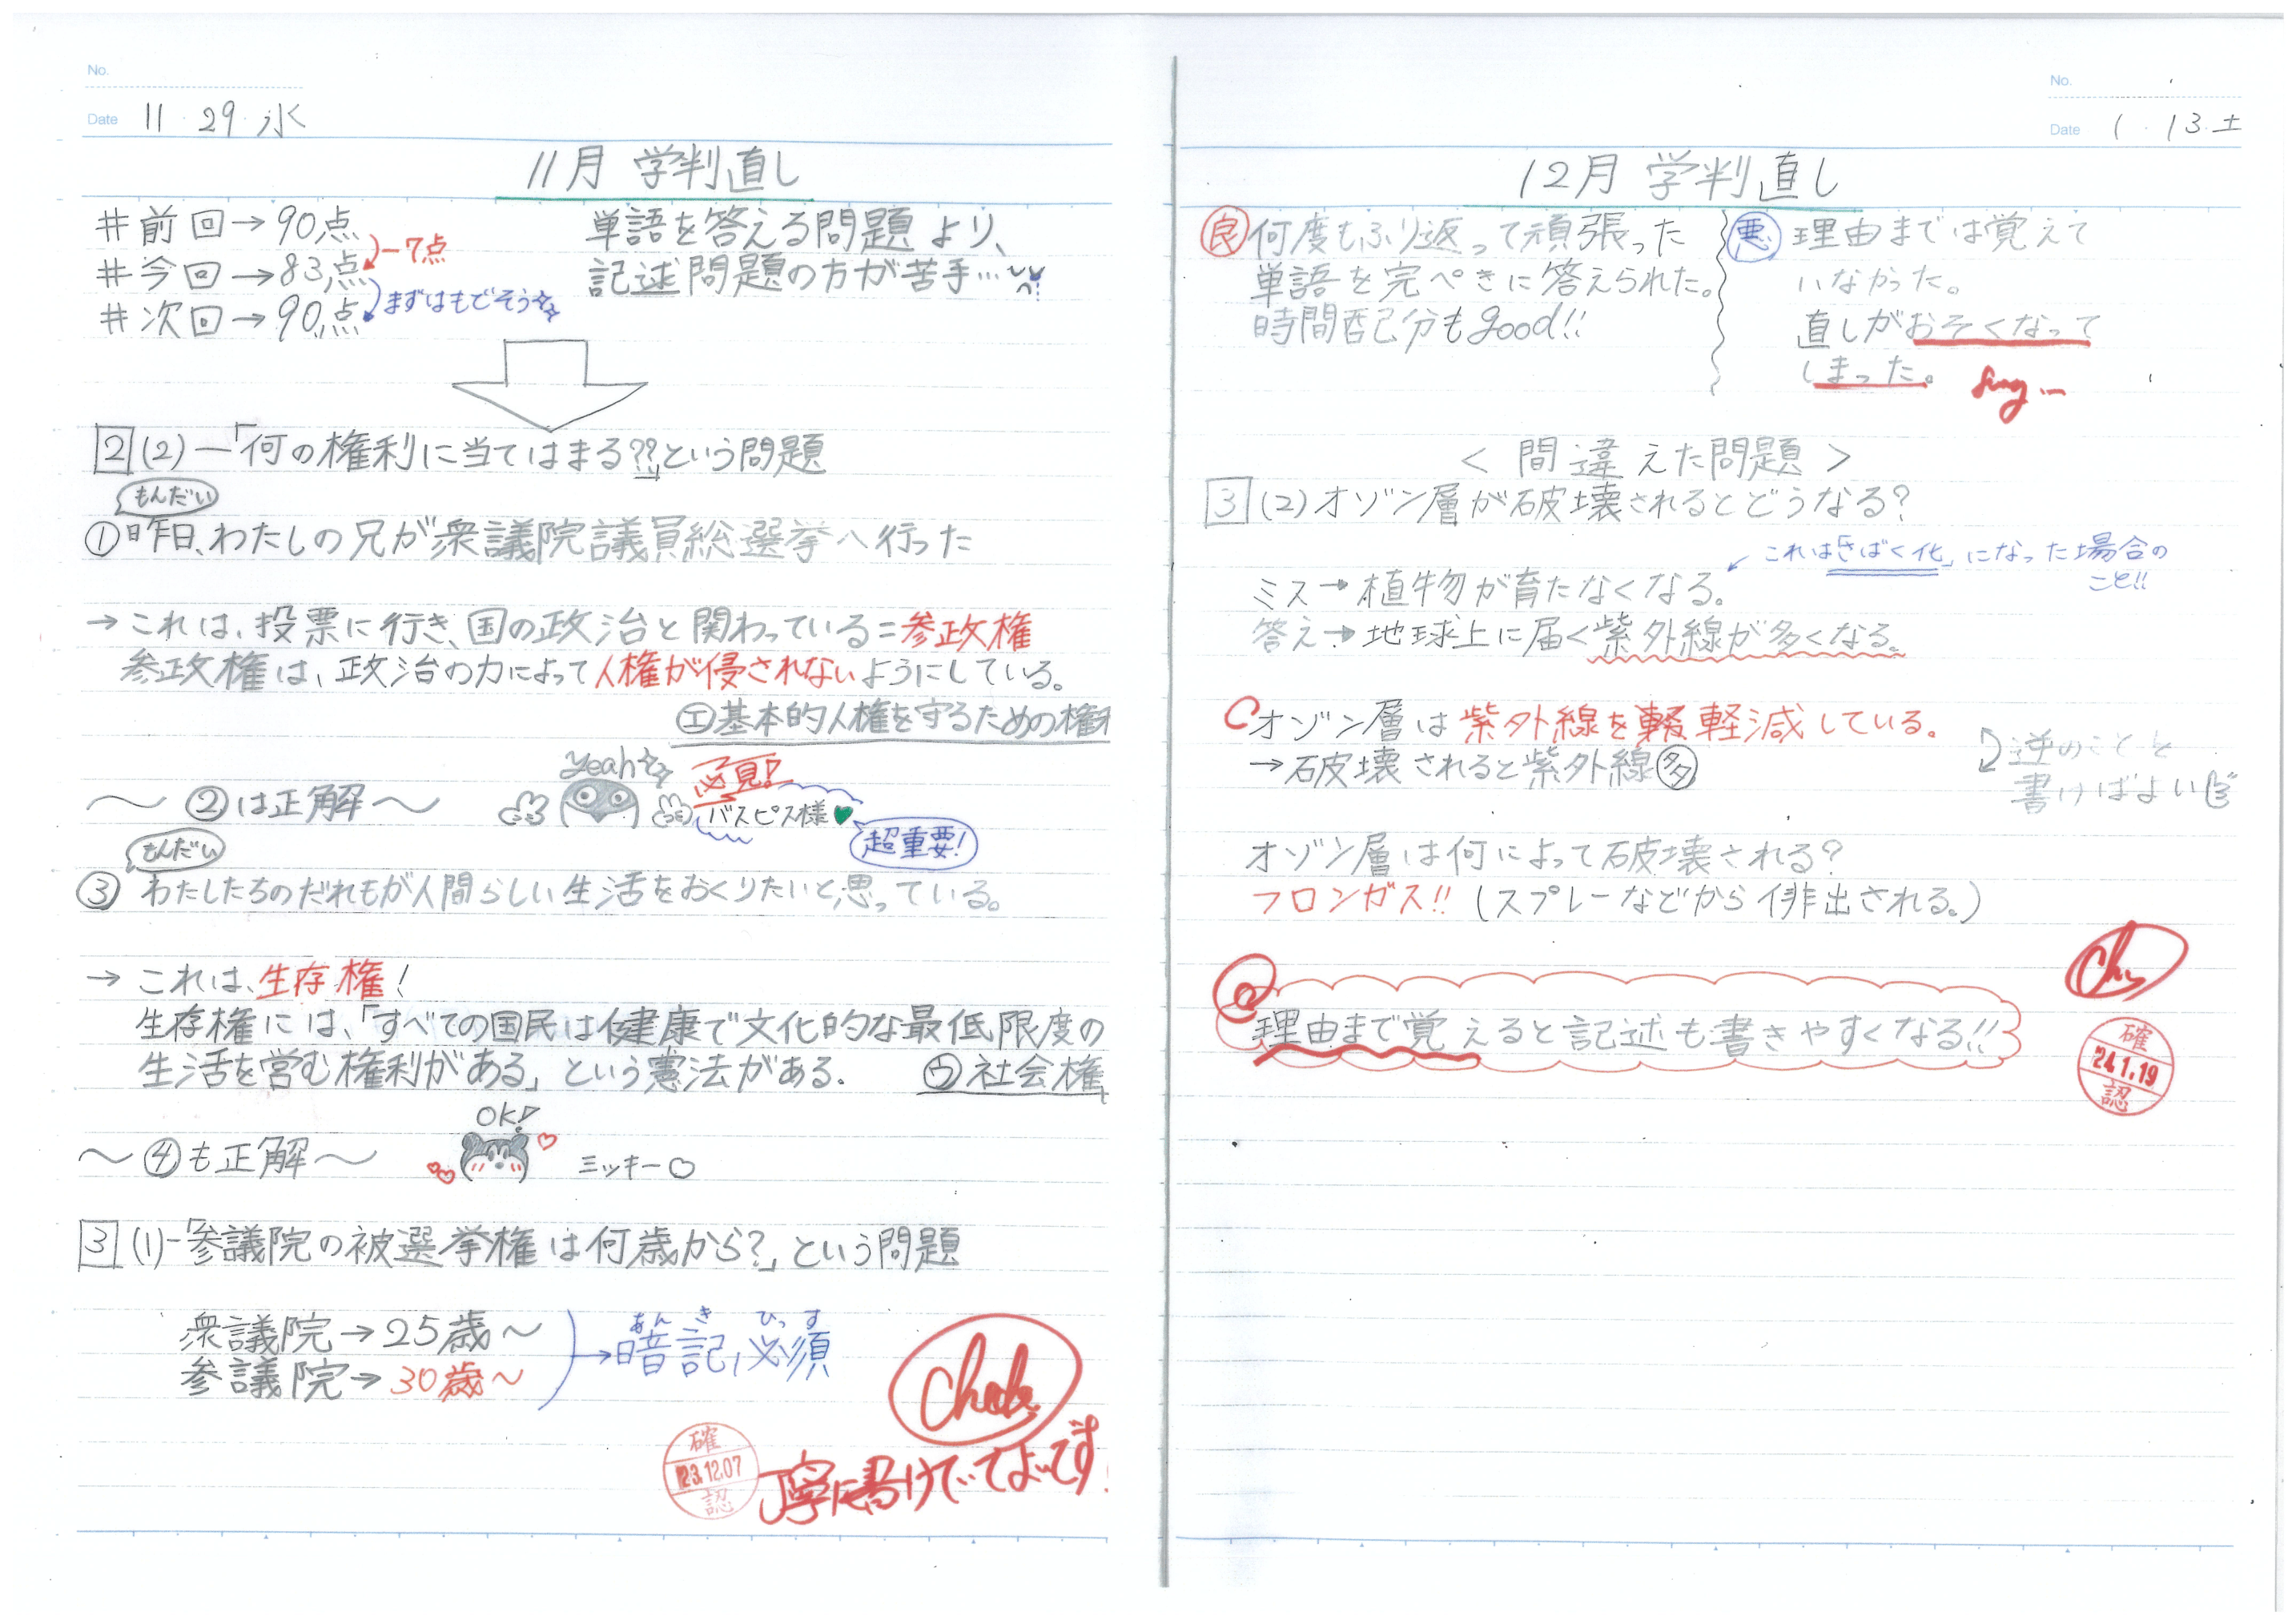 No.
Date 11・29・水
11月 学判直し
#前回→90点
−7点
#今回→83点
まずはもどそう
#次回→90点
単語を答える問題より、
記述問題の方が苦手…
2 (2)ー「何の権利に当てはまる??」という問題
もんだい
①昨日、わたしの兄が衆議院議員総選挙へ行った
→これは、投票に行き、国の政治と関わっている=参政権
参政権は、政治の力によって人権が侵されないようにしている。
エ基本的人権を守るための権利
〜②は正解〜
yeah
必見!
バスピス様
超重要!
もんだい
③ わたしたちのだれもが人間らしい生活をおくりたいと思っている。
→これは、生存権!
生存権には、「すべての国民は健康で文化的な最低限度の
生活を営む権利がある」という憲法がある.
ウ社会権
〜④も正解〜
OK!
ミッキー♡
3 (1)-「参議院の被選挙権は何歳から?」という問題
衆議院→25歳〜
参議院→30歳〜
あんき ひっす
→暗記必須
確
23.12.07
認
丁寧に書けていてよいです
No.
Date 1・13・土
12月 学判直し
良 何度もふり返って頑張った
単語を完ぺきに答えられた。
時間配分もgood!!
悪 理由までは覚えて
いなかった。
直しがおそくなって
しまった。
<間違えた問題>
3 (2)オゾン層が破壊されるとどうなる?
これは「さばく化」になった場合の
こと!!
ミス→植物が育たなくなる。
答え→地球上に届く紫外線が多くなる。
オゾン層は紫外線を軽減している。
→破壊されると紫外線多
逆のことを
書けばよい
オゾン層は何によって破壊される?
フロンガス!!(スプレーなどから排出される。)
理由まで覚えると記述も書きやすくなる!!
確
24.1.19
認